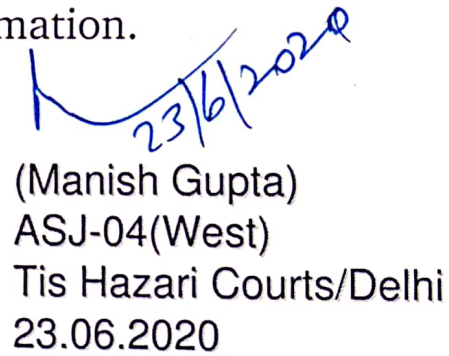 mation.
23/6/2020
(Manish Gupta)
ASJ-04(West)
Tis Hazari Courts/Delhi
23.06.2020